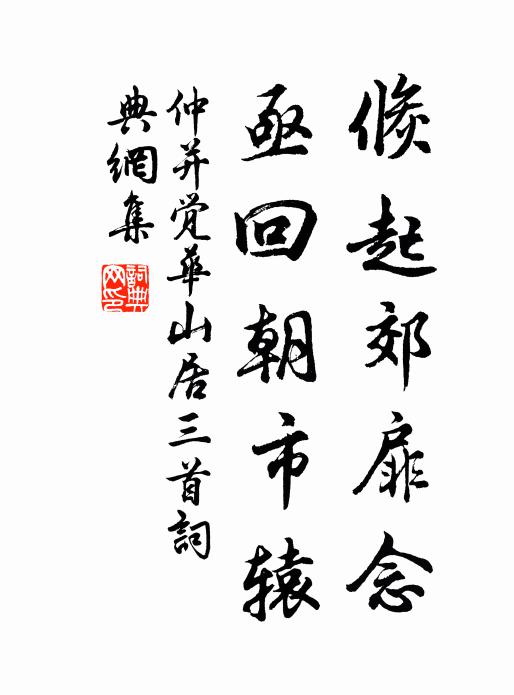 倏起郊扉念
亟回朝市辕
仲并觉華山居三首詞
典網集
詞典网印